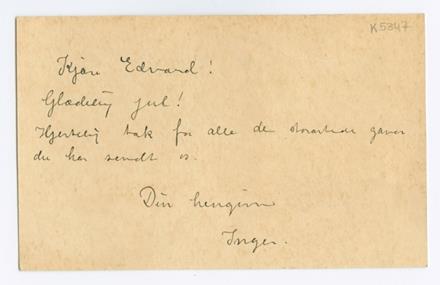 K5347
Kjære Edvard!
Glædelig jul!
Hjertelig tak for alle de storartede gaver
du har sendt os.
Din hengivne
Inger.